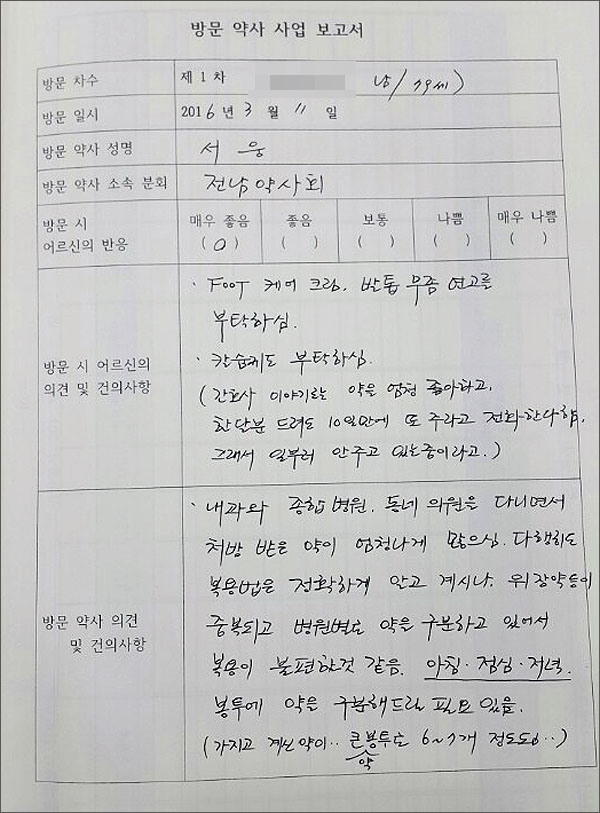 방문 약사 사업 보고서
방문 차수 제 1 차 남/79세)
방문 일시 2016년 3 월 11 일
방문 약사 성명 서 웅
방문 약사 소속 분회 전남약사회
방문 시 어르신의 반응 매우 좋음 (O) 좋음 ( ) 보통 ( ) 나쁨 ( ) 매우 나쁨 ( )
방문 시 어르신의
의견 및 건의사항
· FOOT 케어 크림, 발톱 무좀 연고를
부탁하심.
· 칼슘제도 부탁하심.
(간호사 이야기로는 약을 엄청 좋아하고,
한달분 드려도 10일만에 또 주라고 전화한다함.
그래서 일부러 안주고 있는중이라고.)
방문 약사 의견
및 건의사항
· 내과와 종합병원, 동네 의원을 다니면서
처방 받은 약이 엄청나게 많으심. 다행히도
복용법은 정확하게 알고 계시나, 위장약등이
중복되고 병원별로 약을 구분하고 있어서
복용이 불편한것 같음. 아침·점심·저녁.
봉투에 약을 구분해드릴 필요 있음.
(가지고 계신 약이.. 큰 약봉투로 6~7개 정도됨..)